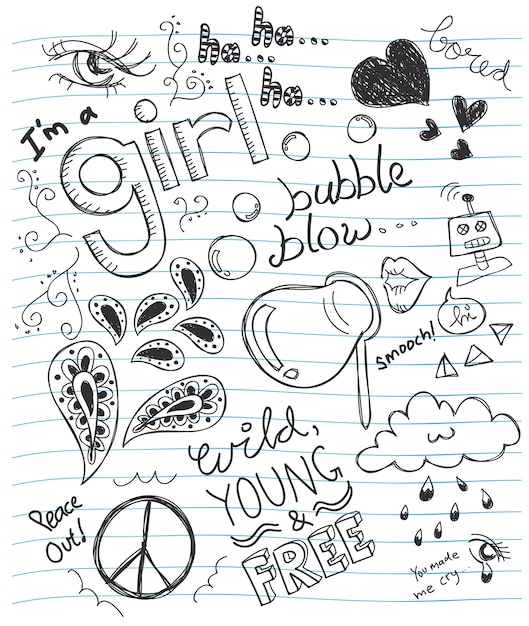 ha...
ha...
ha...
bored
I'm a
girl
bubble
blow....
hi
smooch!
wild,
YOUNG
&
FREE
Peace
Out!
You made
me cry...